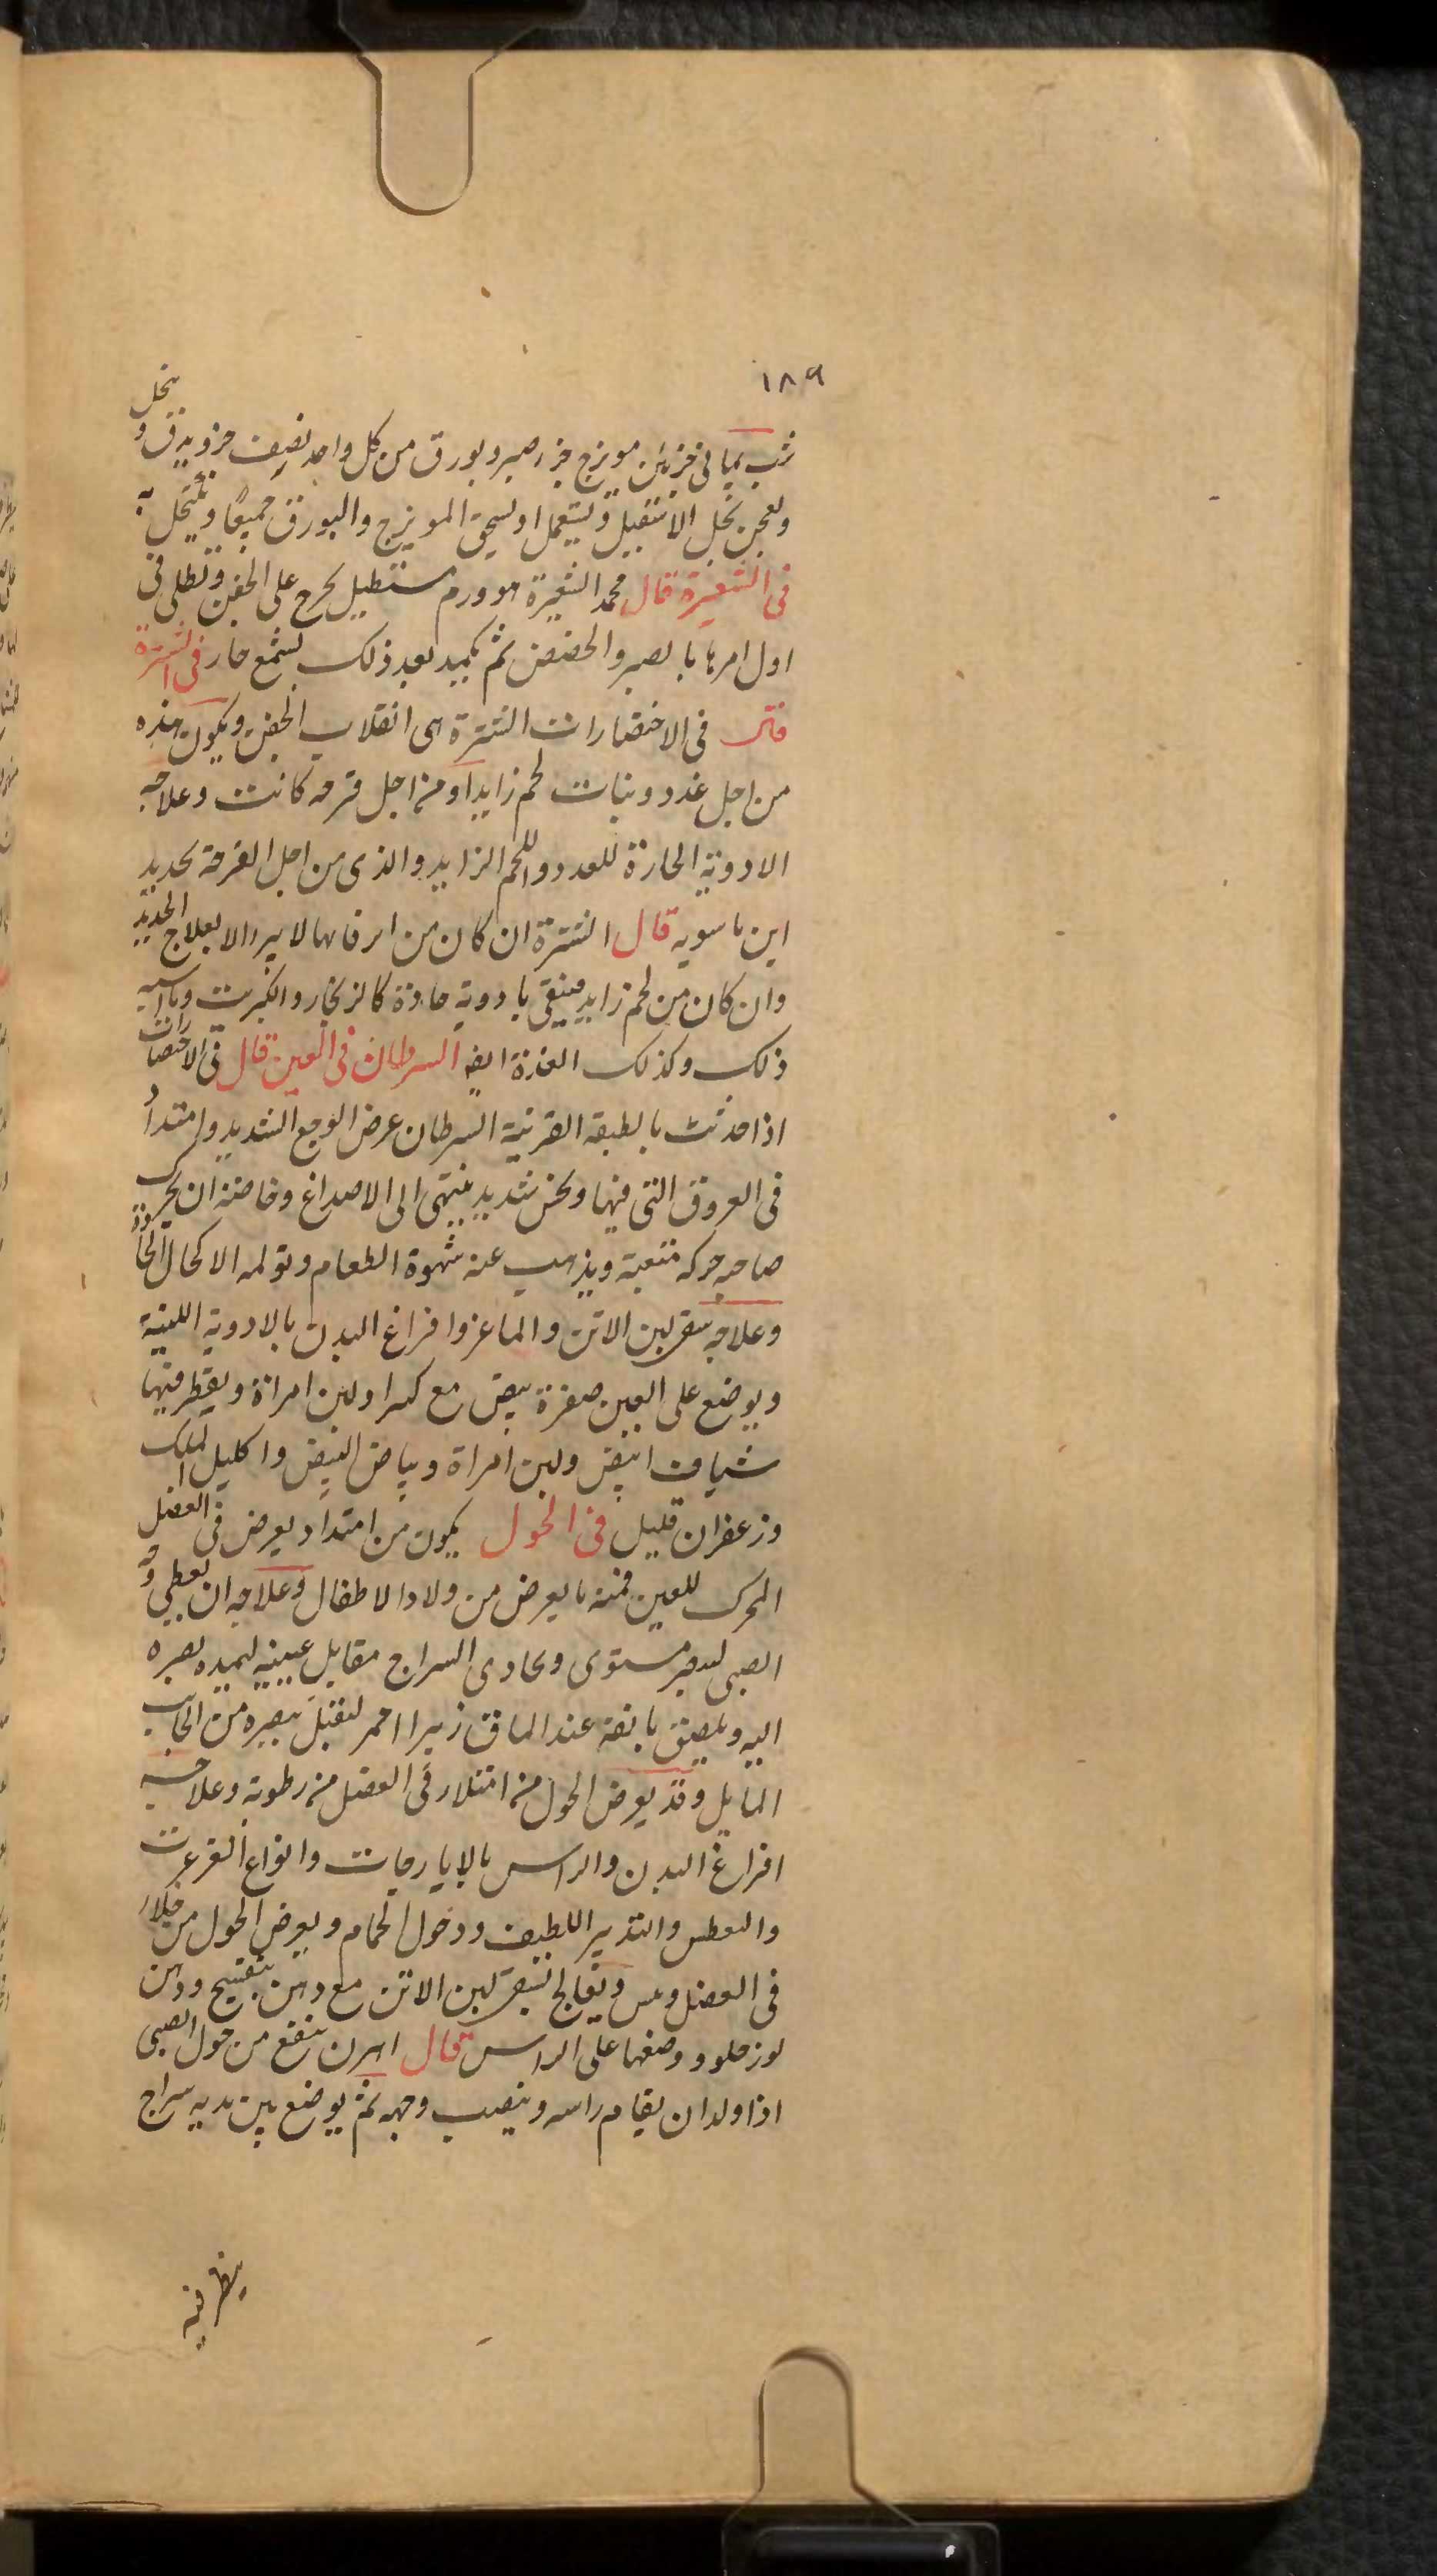 ١٨٩
شب يمانى جزئين مويزج جزء صبر وبورق من كل واحد نصف جزو يدق و ينخل
ويعجن بخل الاشقيل ويستعمل او يسحق المويزج والبورق جميعًا ويكتحل به
فى الشعيرة قال محمد الشعيرة هو ورم مستطيل يخرج على الجفن ويطلى فى
اول امرها بالصبر والحضض ثم يكمد بعد ذلك بشمع حار فى الشترة
قال فى الاختصارات الشترة هى انقلاب الجفن ويكون هذه
من اجل غدد ونبات لحم زايد او من اجل قرحة كانت وعلاجه
الادوية الحادة للغدد واللحم الزايد والذى من اجل القرحة بحديد
ابن ماسويه قال الشترة ان كان من اندمالها لا يبرا الا بعلاج الحديد
وان كان من لحم زايد فينقى بادوية حادة كالزنجار والكبريت وما اشبه
ذلك وكذلك الغدة ايضا السرطان فى العين قال فى الاختصارات
اذا حدثت بالطبقة القرنية السرطان عرض الوجع الشديد وامتداد
فى العروق التى فيها ونخس شديد ينتهى الى الاصداغ وخاصة ان يحرك
صاحبه حركه متعبة ويذهب عنه شهوة الطعام وتولمه الاكحال الحادة
وعلاجه سقى لبن الاتن والماعز وافراغ البدن بالادوية اللينة
ويوضع على العين صفرة بيض مع كثيرا ولبن امراة ويقطر فيها
شياف ابيض ولبن امراة وبياض البيض واكليل الملك
وزعفران قليل فى الحول يكون من امتداد يعرض فى العضل
المحرك للعين فمنه ما يعرض من ولاد الاطفال وعلاجه ان يعطى وجه
الصبى ليبصر مستوى ويحاذى السراج مقابل عينيه ليميده بصره
اليه ويلصق بانفه عند الماق زبيرا احمر ليقبل ببصره من الجانب
المايل وقد يعرض الحول من امتلاء فى العضل من رطوبة وعلاجه
افراغ البدن والراس بالايارجات وانواع الغرغرت
والعطس والتدبير اللطيف ودخول الحمام ويعرض الحول من خلاء
فى العضل ويبس ويعالج بسقى لبن الاتن مع دهن بنفسج ودهن
لوز حلو ووضعها على الراس قال اهرن ينفع من حول الصبى
اذا ولد ان يقام راسه وينصب وجهه ثم يوضع بين يديه سراج
ينظر فيه